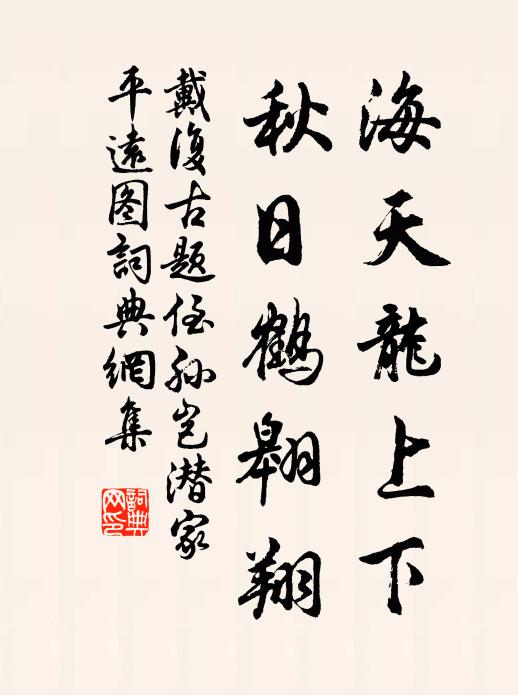 海天龍上下
秋日鶴翱翔
戴復古題侄孫岂潜家
平遠图詞典網集
詞典网印